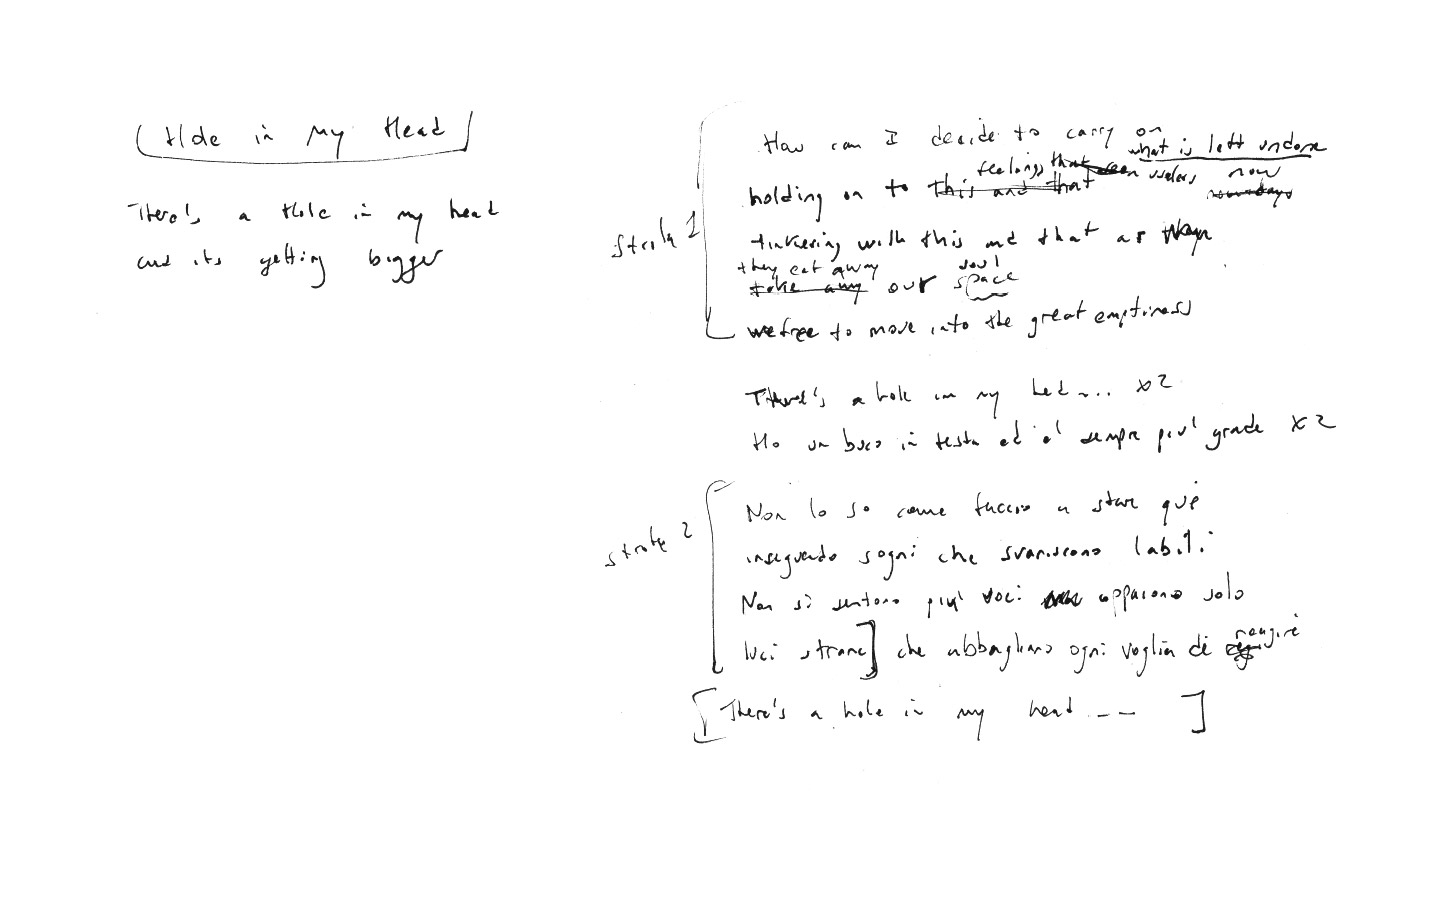 Hole in my Head
There's a Hole in my head
and its getting bigger
strofe 1
How can I decide to carry on
what is left undone
holding on to this and that
feelings that seem useless now
nowadays
tinkering with this and that as
they eat away soul
take away our space
free to move into the great emptiness
There's a hole in my hed... x2
Ho un buco in testa ed e' sempre piu' grade x2
strofe 2
Non lo so come faccio a stare qui
inseguendo sogni che svaniscono labili
Non si sentono piu' voci appaiono solo
luci strane] che abbagliano ogni voglia di reagire
[There's a hole in my head -- ]